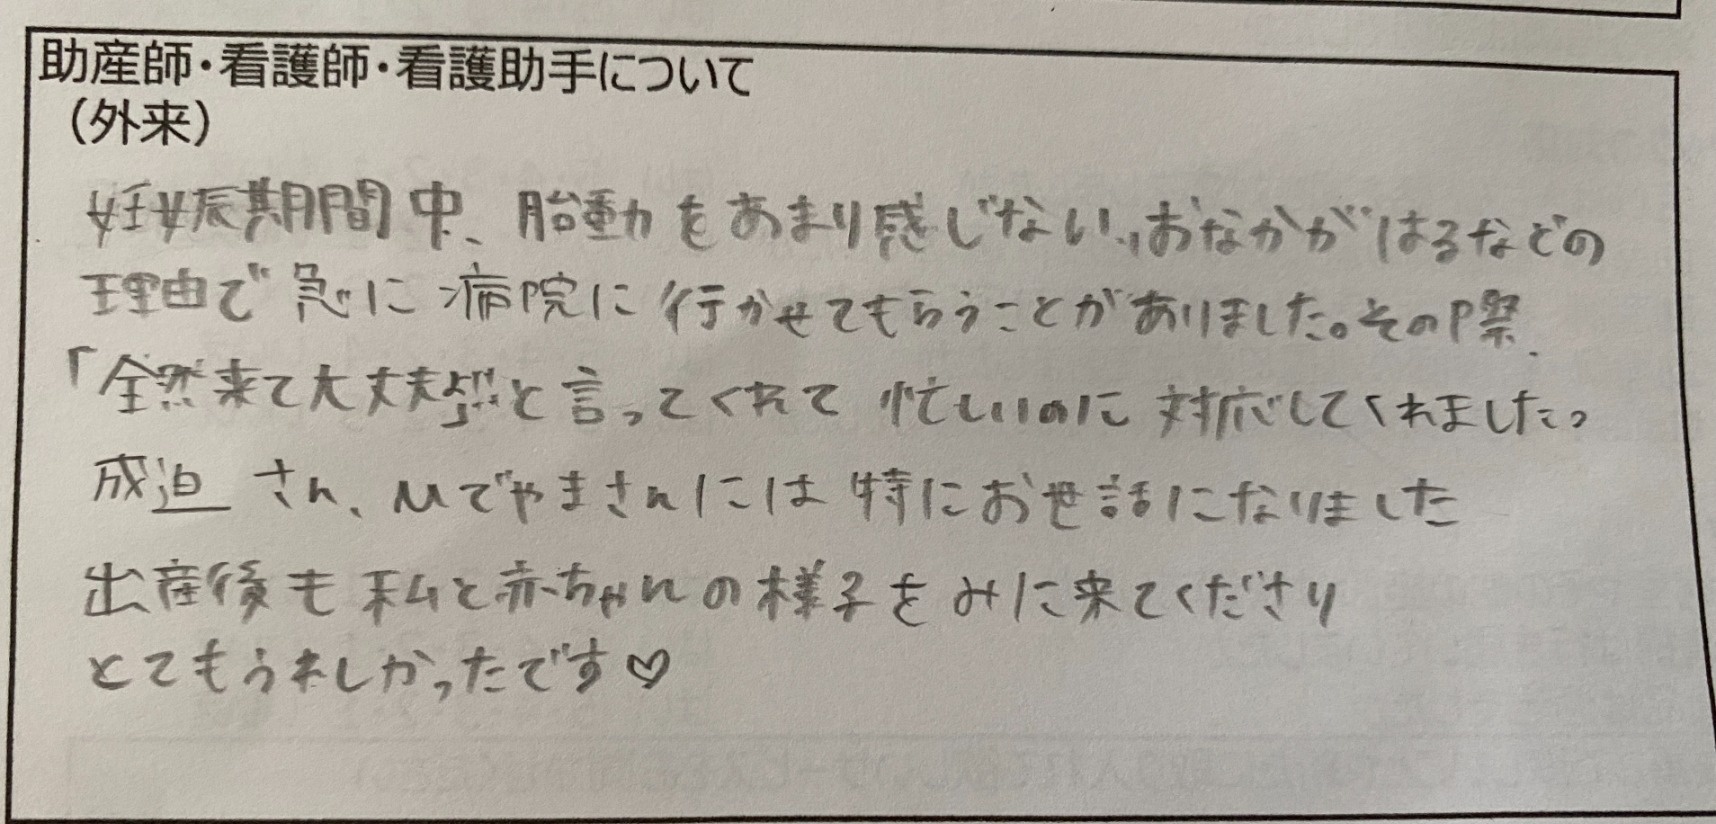 助産師・看護師・看護助手について
（外来）
妊娠期間中、胎動をあまり感じない、おなかがはるなどの
理由で急に病院に行かせてもらうことがありました。その際、
「全然来て大丈夫と言ってくれて忙しいのに対応してくれました。
成迫さん、ひでやまさんには特にお世話になりました
出産後も私と赤ちゃんの様子をみに来てくださり
とてもうれしかったです♡